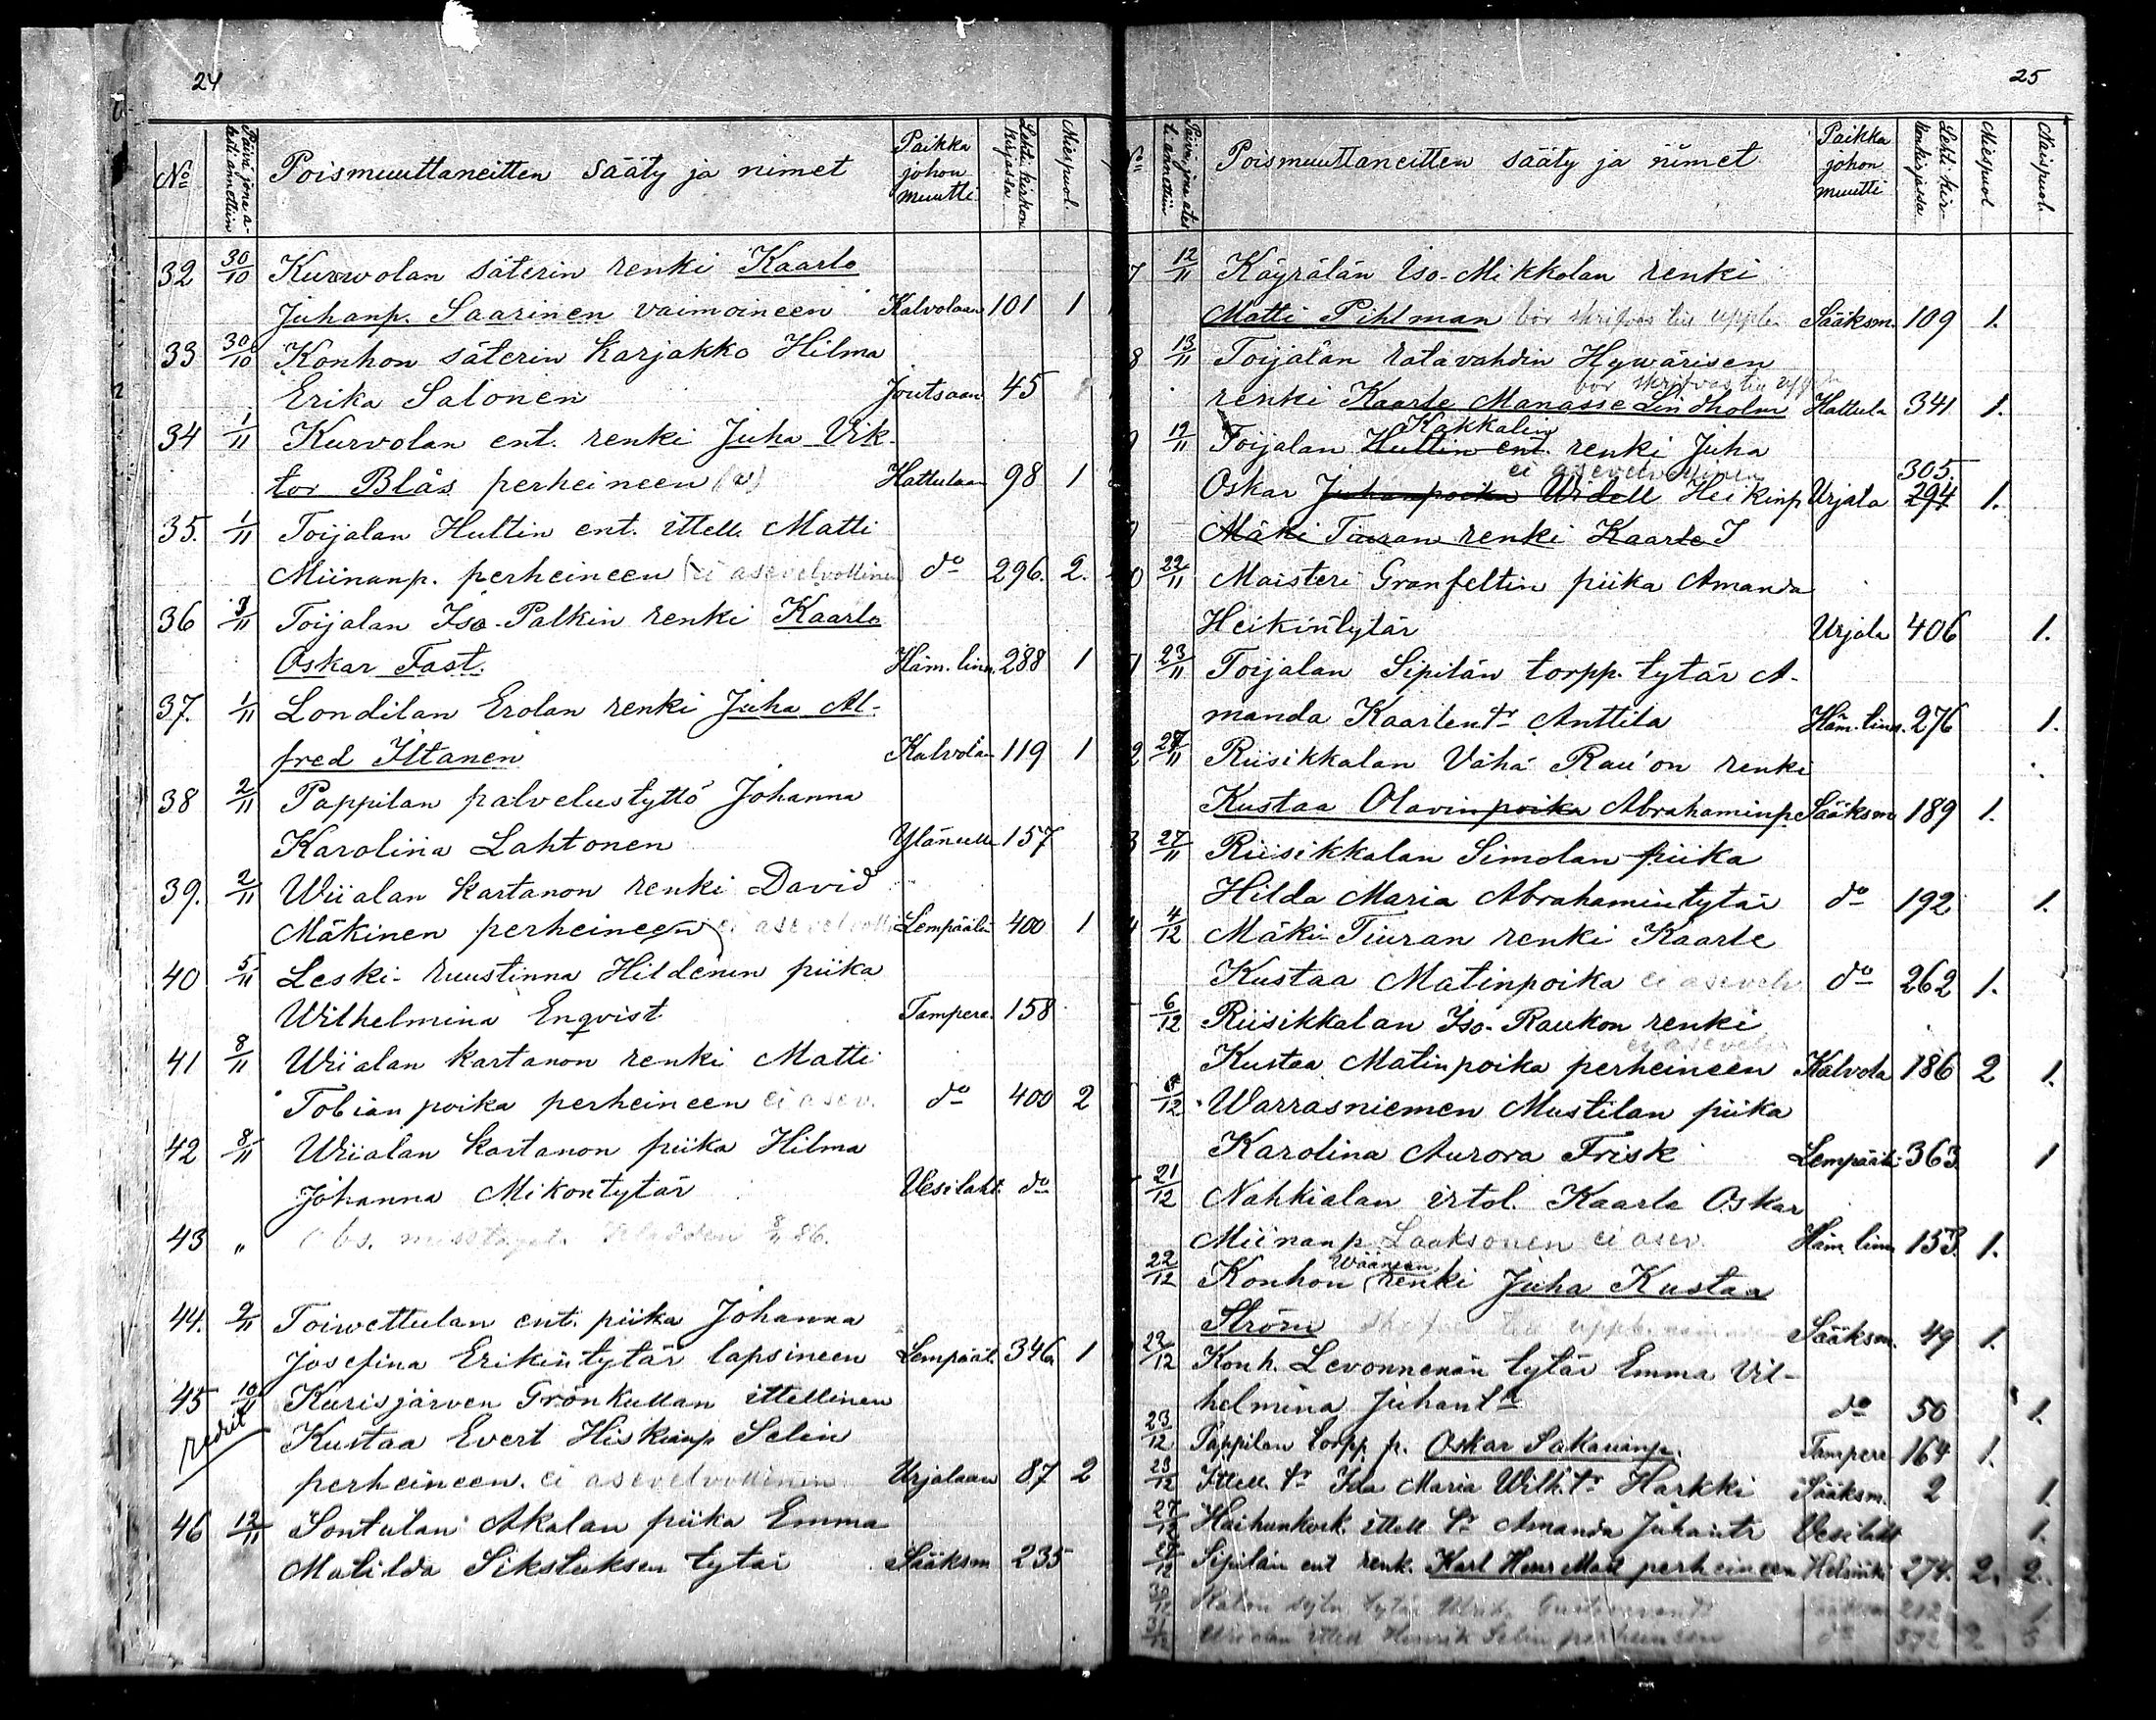 24
No Päivä jona a- Poismuuttaneitten sääty ja nimet Paikka johon muutti Lehti kirkon kirjassa Miespuol.
32 30/10 Kurwolan säterin renki Kaarlo
Juhanp. Saarinen vaimoineen Kalvolaan 101 1
33 30/10 Konhon säterin karjakko Hilma
Erika Salonen Joutsaan 45
34 1/11 Kurvolan ent. renki Juha Vik-
tor Blås perheineen Hattulaan 98 1
35. 1/11 Toijalan Hultin ent. ittell. Matti
Miinanp. perheineen (ei asevelvollinen) do 296. 2.
36 3/11 Toijalan Iso-Palkin renki Kaarlo
Oskar Fast. Häm. linn. 288 1
37. 1/11 Londilan Erolan renki Juha Al-
fred Iltanen Kalvola 119 1
38 2/11 Pappilan palvelustyttö Johanna
Karolina Lahtonen Yläneelle 157
39. 2/11 Wiialan kartanon renki David
Mäkinen perheineen ei asevelvolli Lempäälä 400 1
40 5/11 Leski-ruustinna Hildenin piika
Wilhelmina Enqvist Tampere. 158
41 8/11 Wiialan kartanon renki Matti
Tobianpoika perheineen ei asev. do 400 2
42 8/11 Wiialan kartanon piika Hilma
Johanna Mikontytär Vesilaht. do
43 „ Obs. 8/11 86.
44. 9/11 Toiwettulan ent. piika Johanna
Josefina Erikintytär lapsineen Lempäät. 346 1
45 10/11 Kurisjärven Grönkullan ittellinen
Kustaa Evert Hiskianp Selin
perheineen. ei asevelvollinen Urjalaan 87 2
46 12/11 Sontulan Akalan piika Emma
Matilda Sikstuksen tytär Sääksm 235
25
No Poismuuttaneitten sääty ja nimet Paikka johon muutti Lehti kir- konkirjassa Miespuol Naispuol.
7 12/11 Käyrälän Iso-Mikkolan renki
Matti Pihlman bör skrifvas till uppb. Sääksm. 109 1.
8 13/11 Toijalan ratavahdin Hywärisen
bör skrifvas till uppb
renki Kaarle Manasse Lindholm Hattula 341 1.
Kakkalin
9 19/11 Toijalan Hultin ent. renki Juha
ei asevelvollinen 305.
Oskar Juhanpoika Widell Heikinp Urjala 294 1.
Mäki Tiuran renki Kaarle I
0 22/11 Maisteri Granfeltin piika Amanda
Heikintytär Urjala 406 1.
1 23/11 Toijalan Sipilän torpp. tytär A-
manda Kaarlen tr Anttila Häm. linn. 276 1.
2 27/11 Riisikkalan Vähä Rau'on renki
Kustaa Olavinpoika Abrahaminp. Sääksm 189 1.
3 27/11 Riisikkalan Simolan piika
Hilda Maria Abrahamintytär do 192 1.
4 4/12 Mäki-Tiuran renki Kaarle
Kustaa Matinpoika ei asevelv do 262 1.
6/12 Riisikkalan Iso-Raukon renki
ei asevelv
Kustaa Matinpoika perheineen Kalvola 186 2 1.
8/12 Warrasniemen Mustilan piika
Karolina Aurora Frisk Lempäälä 363 1
21/12 Nahkialan irtol. Kaarle Oskar
Miinanp. Laaksonen ei asev. Häm. linn 153. 1.
Wäänsen
22/12 Konhon renki Juha Kustaa
Ström Sääksm. 49 1.
22/12 Konh. Levonnenän tytär Emma Vil-
helmina Juhan tr do 50 1.
23/12 Pappilan torpp. p. Oskar Sakarinp. Tampere 164 1.
23/12 Ittell. tr Ida Maria Wilh. tr Harkki Sääksm. 2 1.
27/12 Haihunkosk. ittell tr Amanda Juhantr Vesilaht 1.
Sipilän ent renk. Karl Henr Matt perheineen Helsinki 274. 2. 2.
30/12 tytär Ulrika 212 1.
31/12 Wiialan ittell Henrik Selin perheineen do 372 2 3